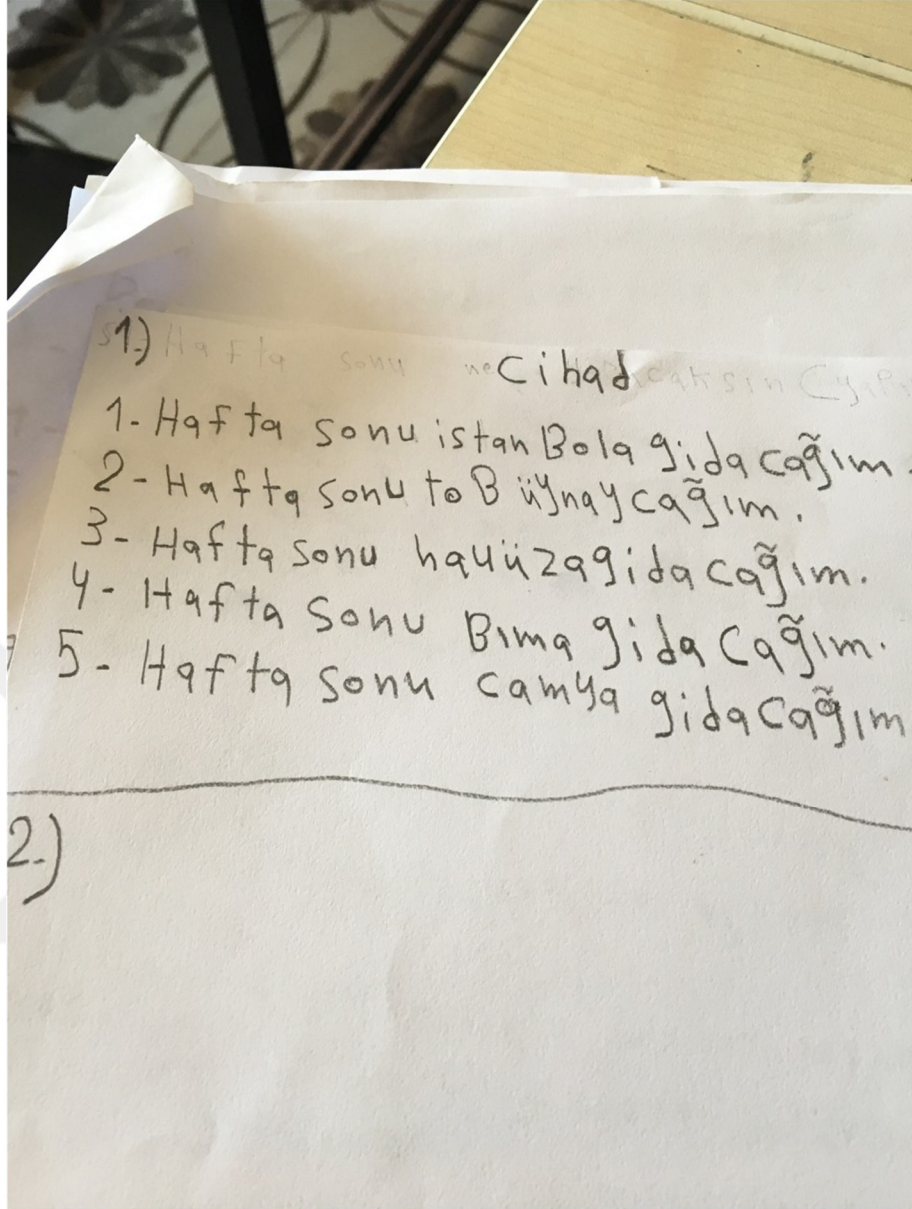 1.) Hafta sonu ne Cihad caksın (yapa
1- Hafta sonu istanBola gidacağım.
2- Hafta sonu toB üynaycağım.
3- Hafta sonu hauüzagidacağım.
4- Hafta sonu Bıma gidacağım.
5- Hafta sonu camya gidacağım
2.)